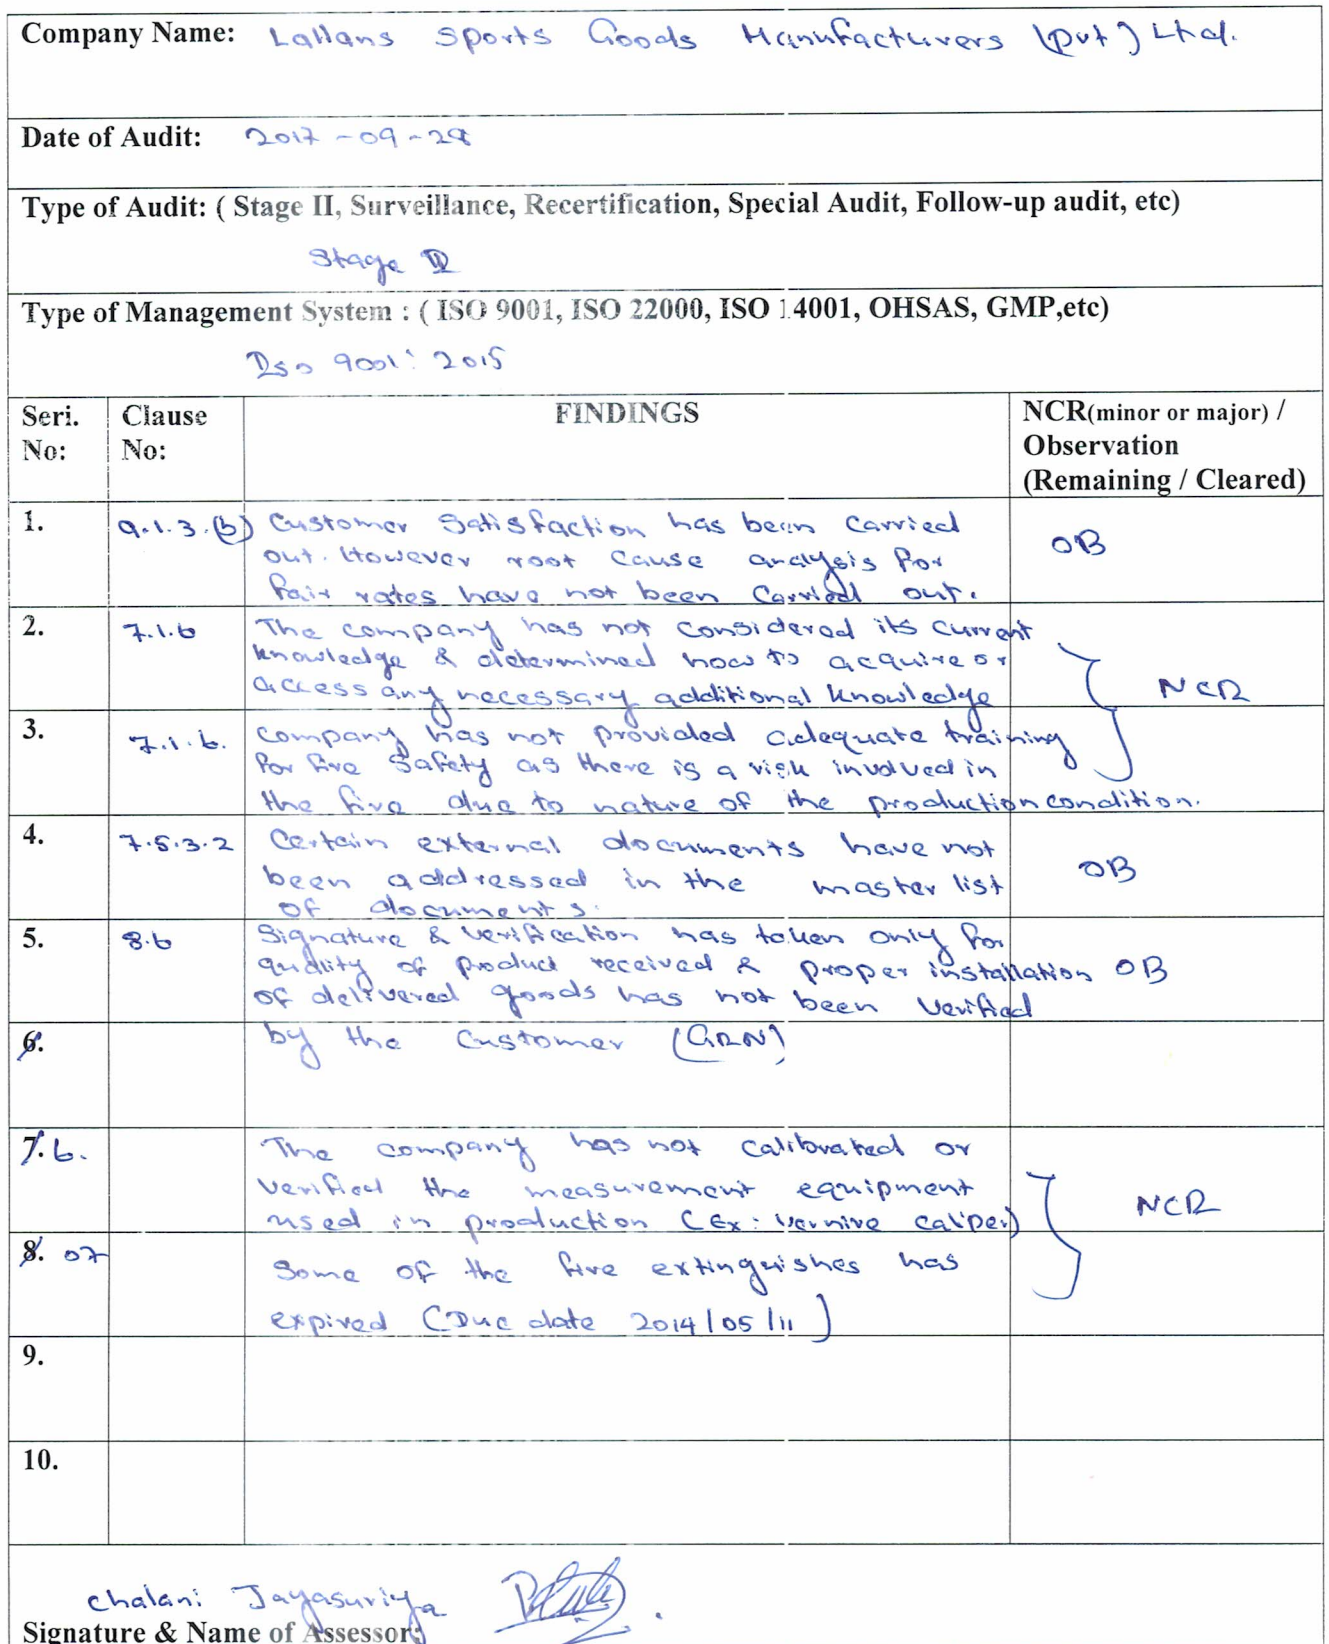 Company Name: Lallans Sports Goods Manufacturers (pvt) Ltd.
Date of Audit: 2017-09-28
Type of Audit: ( Stage II, Surveillance, Recertification, Special Audit, Follow-up audit, etc)
Stage II
Type of Management System : ( ISO 9001, ISO 22000, ISO 14001, OHSAS, GMP,etc)
ISO 9001: 2015
Seri. No: Clause No: FINDINGS NCR(minor or major) / Observation (Remaining / Cleared)
1. 9.1.3.(b) Customer Satisfaction has been carried OB
out. However root cause analysis for
fair rates have not been carried out.
2. 7.1.6 The company has not considered its current
knowledge & determined how to acquire or
access any necessary additional knowledge NCR
3. 7.1.6. company has not provided adequate training
for fire safety as there is a risk involved in
the fire due to nature of the production condition.
4. 7.5.3.2 Certain external documents have not
been addressed in the master list OB
of documents.
5. 8.6 Signature & verification has taken only for
quality of product received & proper installation OB
of delivered goods has not been verified
6. by the customer (GRN)
7. 6. The company has not calibrated or
verified the measurement equipment NCR
used in production (Ex: vernire caliper)
8. 07 Some of the fire extinguishes has
expired (Due date 2014/05/11)
9.
10.
Chalani Jayasuriya
Signature & Name of Assessor: